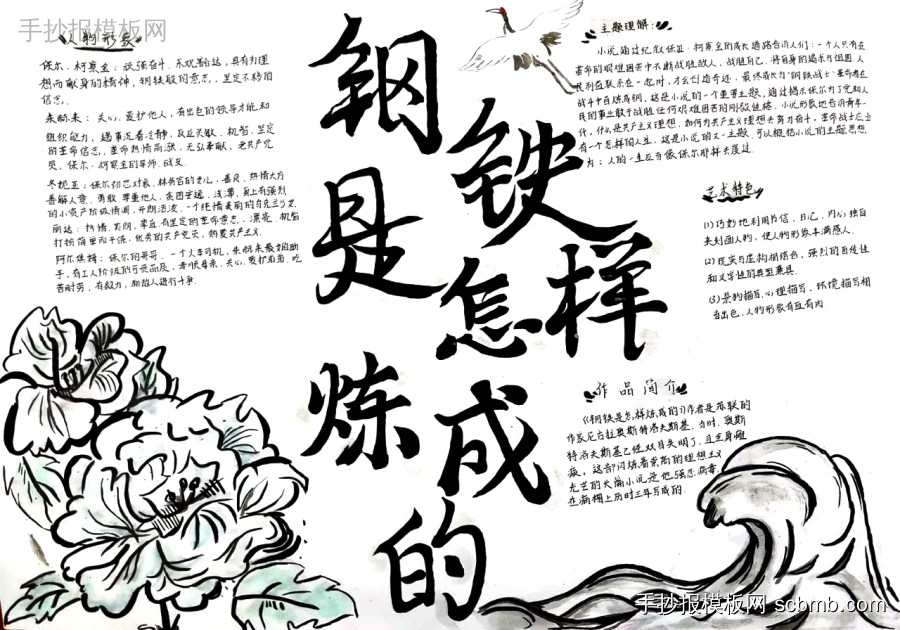 手抄报模板网
人物形象
保尔·柯察金：顽强奋斗、乐观豁达，具有为理
想而献身的精神，钢铁般的意志，坚定不移的
信念。
朱赫来：关心、爱护他人，有出色的领导才能和
组织能力，遇事沉着冷静，反应灵敏、机智，坚定
的革命信念，革命热情高涨，无私奉献，老共产党
员，保尔·柯察金的导师、战友。
冬妮亚：保尔初恋对象，林务官的女儿，善良、热情大方
善解人意、勇敢、尊重他人，贪图安逸、浅薄，身上有强烈
的小资产阶级情调，开朗活泼，一个纯情美丽的乌克兰少女
丽达：热情、英明、果敢，有坚定的革命意志，漂亮，机智
打扮简单而干练，优秀的共产党员，热爱共产主义
阿尔焦姆：保尔的哥哥，一个火车司机，朱赫来最好的助
手，有工人阶级的可贵品质，孝顺母亲，关心、爱护弟弟，吃
苦耐劳，有毅力，和敌人进行斗争
钢
铁
是
怎
样
炼
成
的
主题理解：
小说通过记叙保尔·柯察金的成长道路告诉人们，一个人只有在
革命的艰难困苦中不断战胜敌人，战胜自己，将自身的追求与祖国、人
民利益联系在一起时，才会创造奇迹，最终成长为"钢铁战士"。革命者在
战斗中百炼成钢，这是小说的一个重要主题，通过揭示保尔为了党和人
民的事业敢于战胜任何艰难困苦的刚毅性格，小说形象地告诉青年一
代，什么是共产主义理想，如何为共产主义理想去努力奋斗，革命战士应当
有一个怎样的人生，这是小说的又一主题，可以概括小说的主题思想
为：人的一生应当像保尔那样去度过
艺术特色
(1)巧妙地利用书信、日记、内心独白
来刻画人物，使人物形象丰满感人。
(2)现实与虚构相结合，强烈的自传性
和文学性的典型兼具
(3)景物描写，心理描写、环境描写相
当出色，人物形象有血有肉
作品简介
《钢铁是怎样炼成的》作者是苏联的
作家尼古拉奥斯特洛夫斯基，当时，奥斯
特洛夫斯基已经双目失明了，且全身瘫
痪。这部闪烁着崇高的理想主义
光芒的长篇小说是他强忍病毒，
在病榻上历时三年写成的。
手抄报模板网 scbmb.com